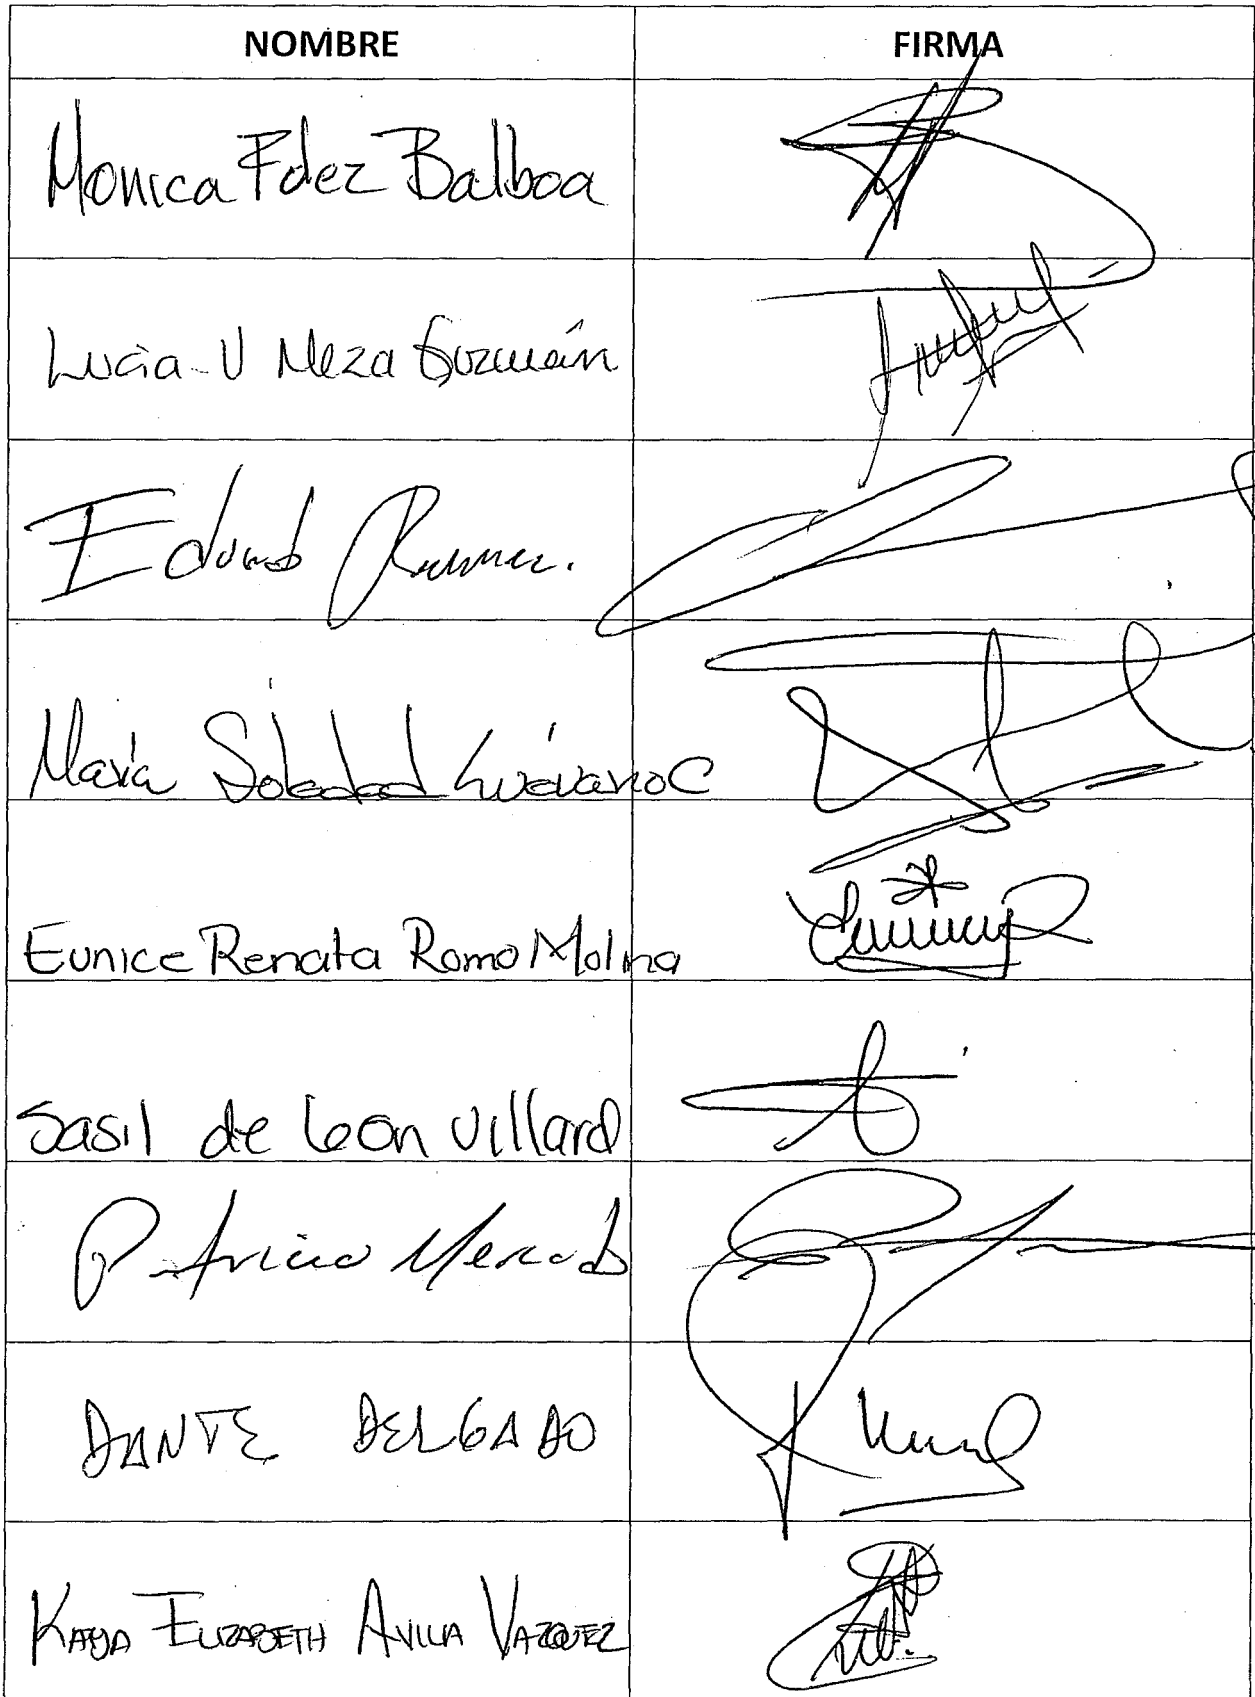 NOMBRE FIRMA
Monica Fdez Balboa
Lucia V Meza Guzmán
Eduardo Ramírez.
María Soledad Luévano C
Eunice Renata Romo Molina
Sasil de León Villard
Patricia Mercado
DANTE DELGADO
KATYA ELIZABETH AVILA VAZQUEZ